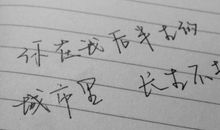 你在我后半生的
城市里 长生不